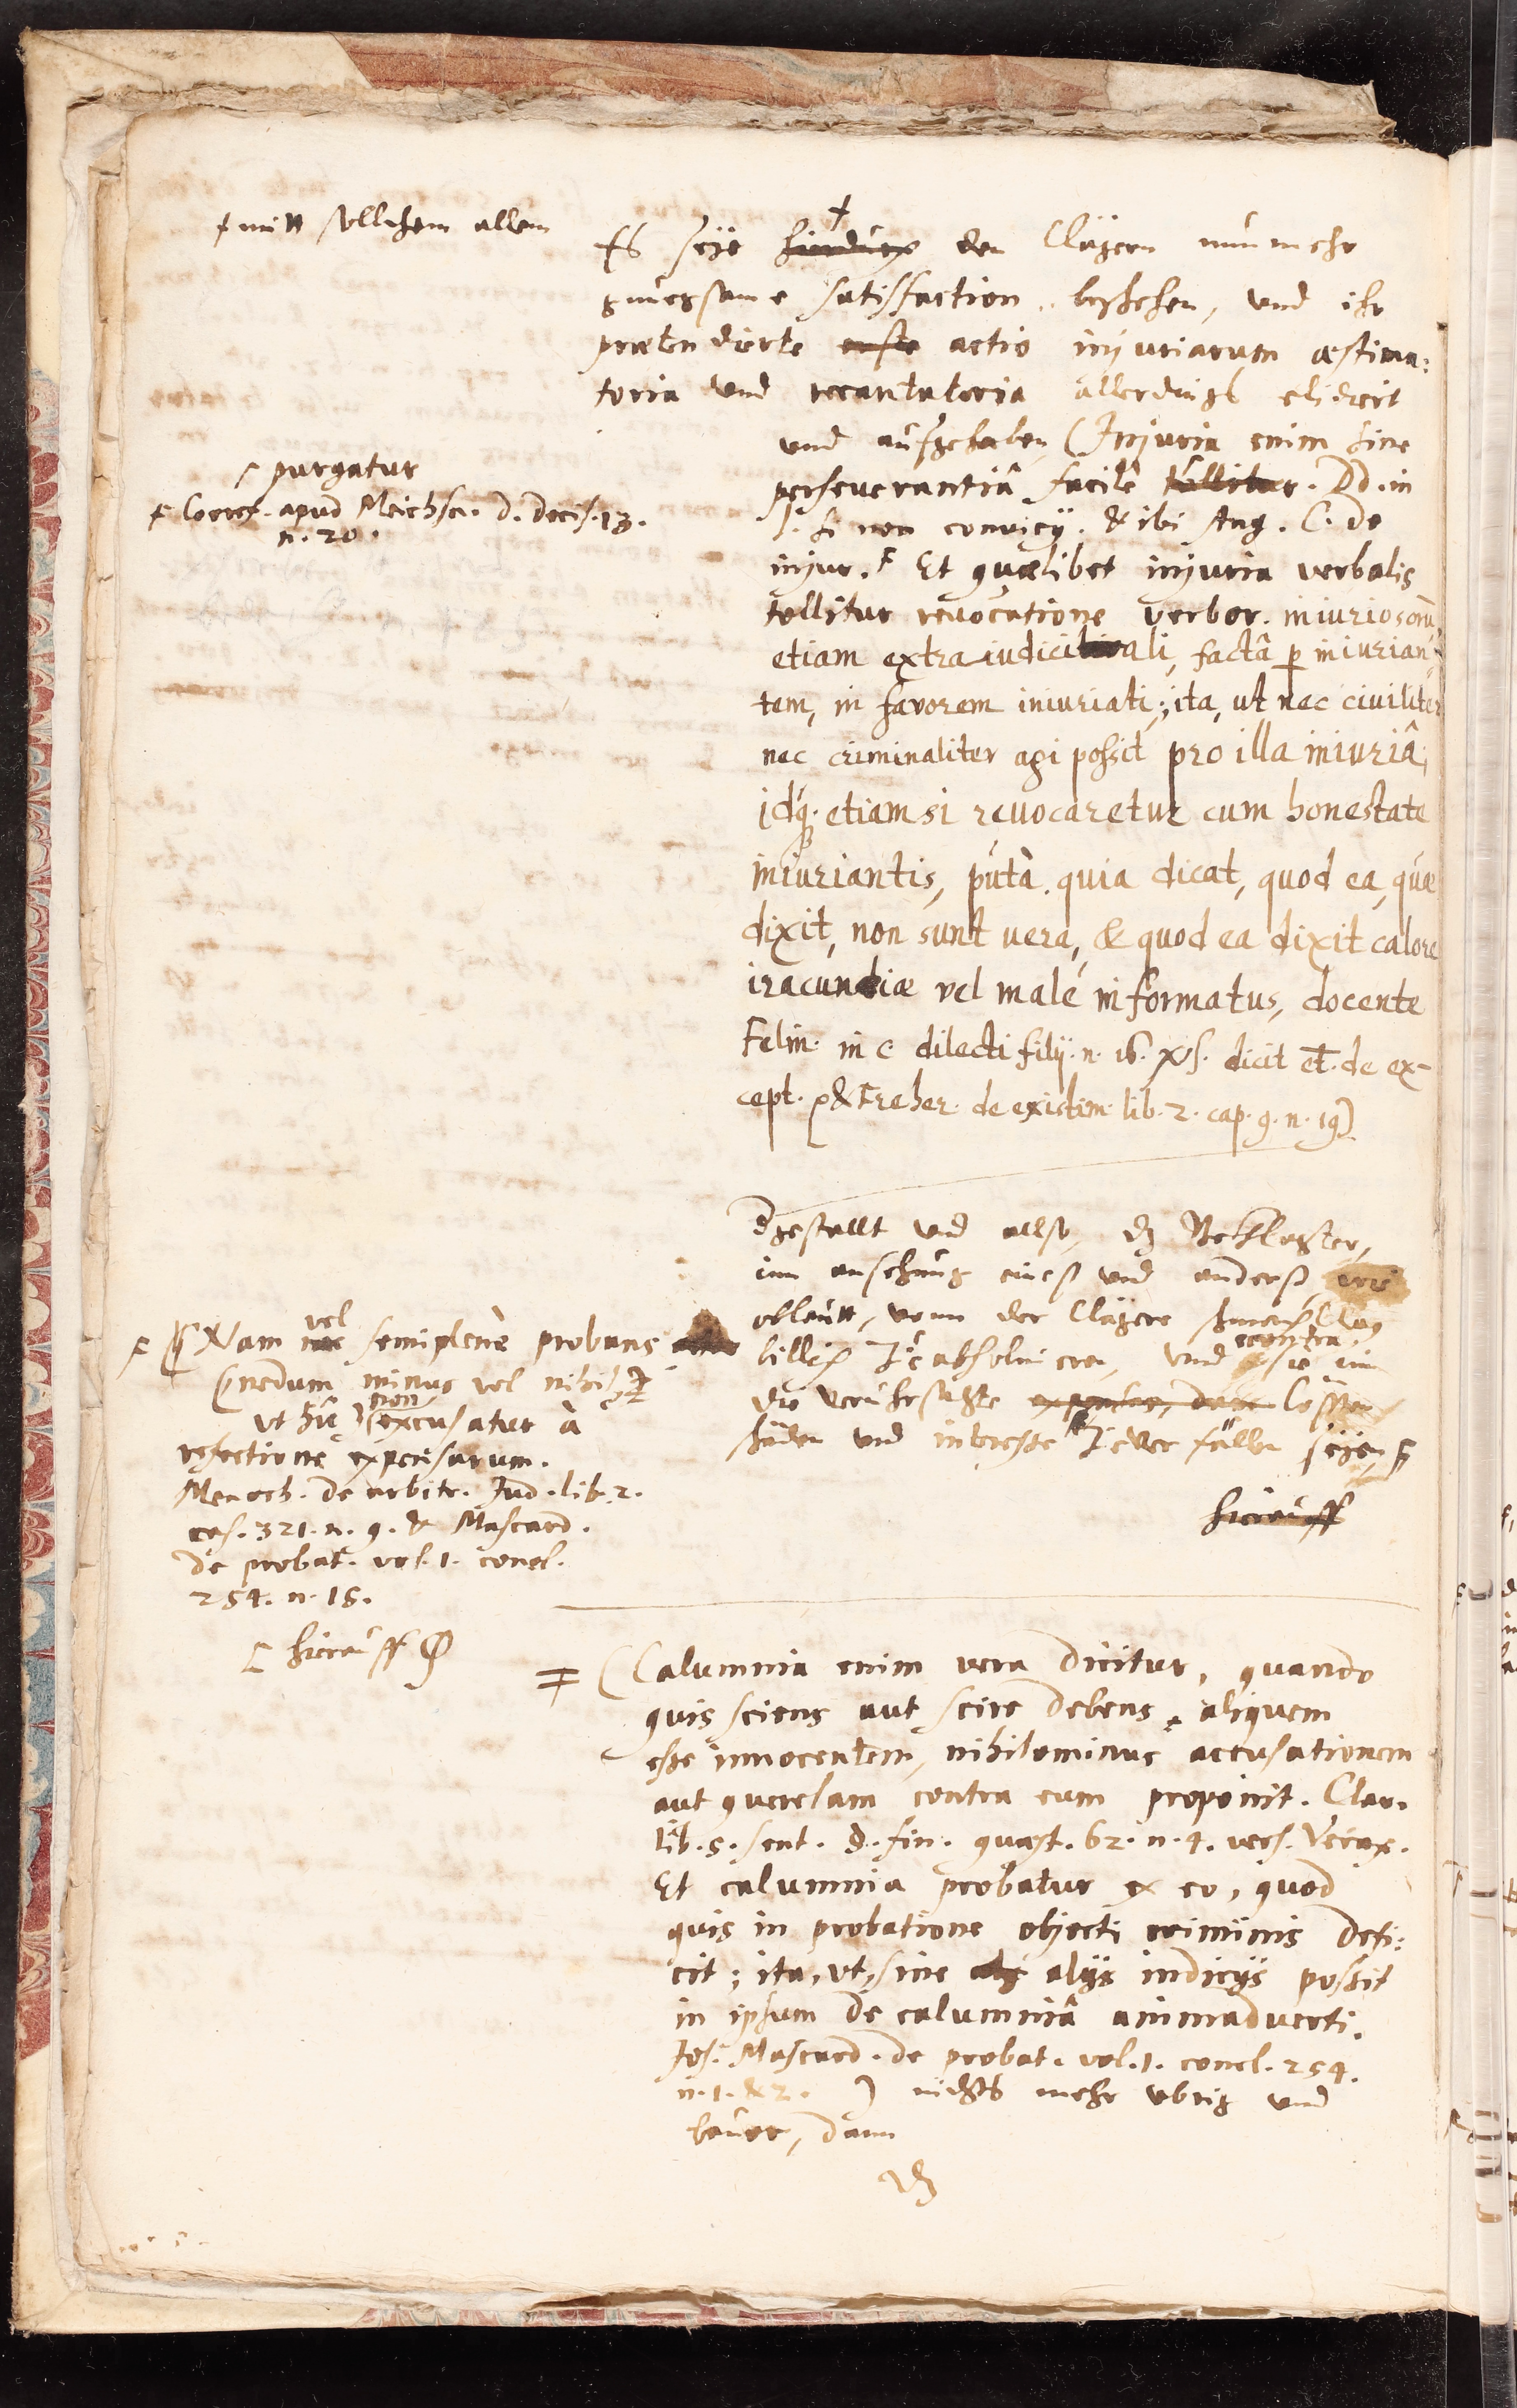 † mitt sollichem allem
Es seye hiedurch den Clägern nunmehr
gnuegsame satisfaction beschehen, und ihr
prætendierte actio injuriarum æstima:
toria und recantatoria allerdings elidiert
und aufgehaben (Injuria enim sine
perseverantiâ facilè tollitur. Dd. in
l. si non convicij. & ibi Ang. C. de
injur. F Et quælibet injuria verbalis
tollitur revocatione verbor. iniuriosorũ,
etiam extraiudiciali, factâ ꝑ iniurian-
tem, in favorem iniuriati; ita, ut nec civiliter
nec criminaliter agi possit pro illa iniuriâ,
idq́. etiamsi revocaretur cum honestate
iniuriantis, putà quia dicat, quod ea, quæ
dixit, non sunt vera, & quod ea dixit calore
iracundiæ vel malè informatus, docente
Felin. in c. dilecti filij. n. 16. dicit et. de ex-
cept. & Freher. de existim. lib. 2. cap. 9. n. 19)
purgatur
F apud Meichsn. d. Decis. 13.
n. 20.
Dgestallt und allso, dz Beklagter,
inn ansehung eines und anders,
obllaut, vonn der Clägere
billich Ze absolvieren, und econtra sie inn
die verursachte expensas, Costen
schäden und interesse Zeverfällen seyen
hierauff
F Nam nec vel semiplenè probans
(nedum minus vel nihil
vt hîc) non excusatur à
refectione expensarum.
Menoch. de arbitr. Jud. lib. 2.
cas. 321. n. 9. & Mascard.
de probat. vol. 1. concl.
254. n. 15.
hierauff
(Calumnia enim vera dicitur, quando
quis sciens aut scire debens, aliquem
esse innocentem, nihilominus accusationem
aut querelam contra eum proponit. Clar.
lib. 5. sent. §. fin. quæst. 62. n. 4. vers.
Et calumnia probatur ex eo, quod
quis in probatione objecti criminis defi:
cit; ita, vt, sine alijs indicijs possit
in ipsum de calumniâ animadverti.
Jos. Mascard. de probat. vol. 1. concl. 254.
n. 1. & 2. ) nichts mehr vbrig und
bevor, dann